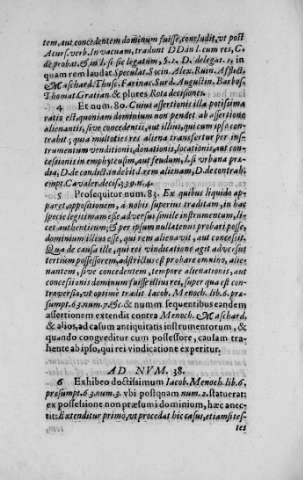 tem, aut concedentem dominum fuisse, concludit, vt post
Acurs. verb. In vacuam, tradunt DD. in l. cum res, C.
de probat. & in l. si sic legatum, §. 1. D. de legat. 1. in
quam rem laudat Speculat. Socin. Alex. Ruin. Afflict.
Maschard. Thusc. Farinac. Surd. Augustin. Barbos.
Thomat. Gratian. & plures Rotæ decisiones.
4 Et num. 80. Cuius assertionis illa potissima
ratio est, quoniam dominium non pendet ab assertione
alienantis, siue concedentis, aut illius, qui cum ipso con-
trahit; quia multoties res aliena transfertur per in-
strumentum venditionis, donationis, locationis, aut con-
cessionis in emphyteusim, aut feudum, l. si vrbana præ-
dia, D. de condict. indebit. l. rem alienam, D. de contrah.
empt. Caualer. decis. 339. n. 4.
5 Prosequitur num. 83. Ex quibus liquido ap-
paret oppositionem, à nobis superius traditam, in hac
specie legitimam esse aduersus simile instrumentum, li-
cet authenticum; & per ipsum nullatenus probari posse,
dominium illius esse, qui rem alienauit, aut concessit.
Qua de causa ille, qui rei vindicatione agit aduersus
tertium possessorem, adstrictus est probare omnino, alie-
nantem, siue concedentem, tempore alienationis, aut
concessionis dominum fuisse illius rei, super qua est con-
trouersia, vt optimè tradit Iacob. Menoch. lib. 6. præ-
sumpt. 63. num. 7. &c. & numm. sequentibus eandem
assertionem extendit contra Menoch. Maschard.
& alios, ad casum antiquitatis instrumentorum, &
quando congreditur cum possessore, causam tra-
hente ab ipso, qui rei vindicatione experitur.
AD NVM. 38.
6 Exhibeo doctissimum Iacob. Menoch. lib. 6.
præsumpt. 63. num. 3. vbi postquam num. 2. statuerat:
ex possessione non præsumi dominium, hæc anec-
tit: Extenditur primo, vt procedat hic casus, etiamsi tes-
tes